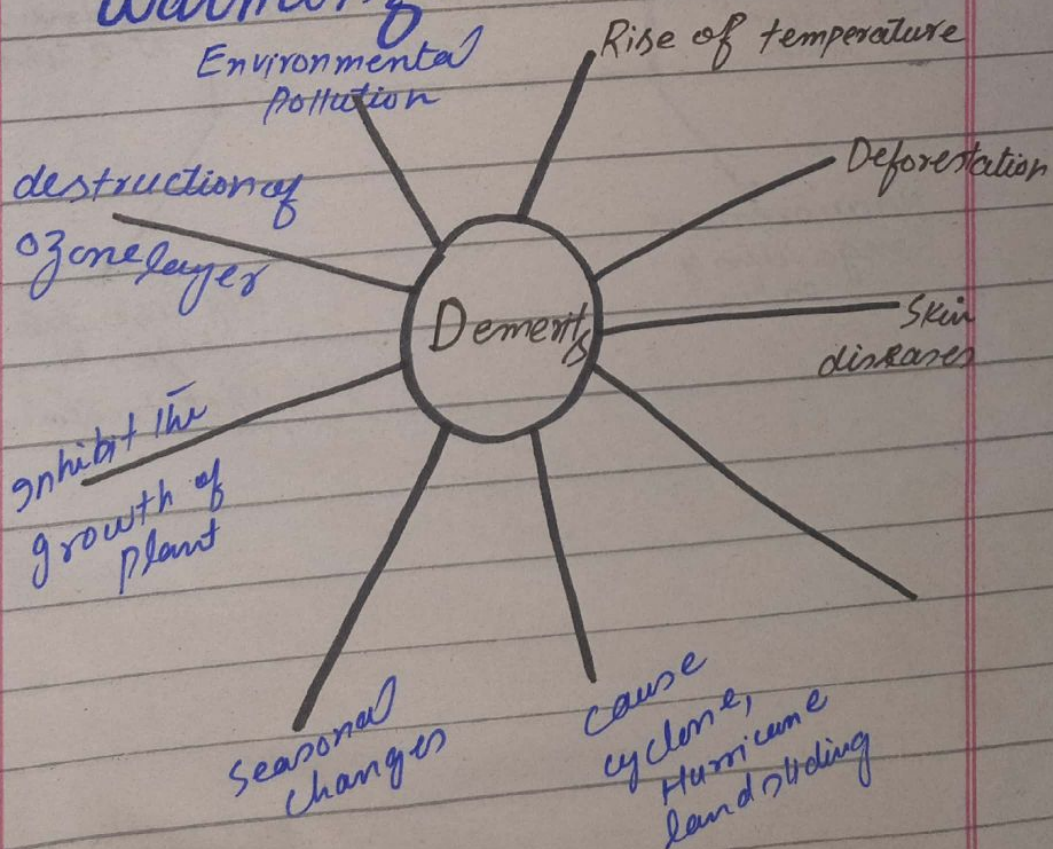 warming
Environmental
Pollution
Rise of temperature
Deforestation
destruction of
ozone layer
Demerits
Skin
diseases
inhibit the
growth of
plant
seasonal
changes
cause
cyclone,
Hurricane
landsliding